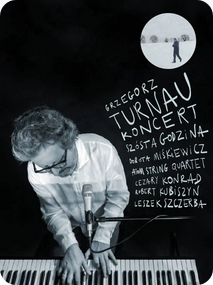 GRZEGORZ
TURNAU
KONCERT
SZÓSTA GODZINA
DOROTA MIŚKIEWICZ
STRING QUARTET
CEZARY KONRAD
ROBERT KUBISZYN
LESZEK SZCZERBA